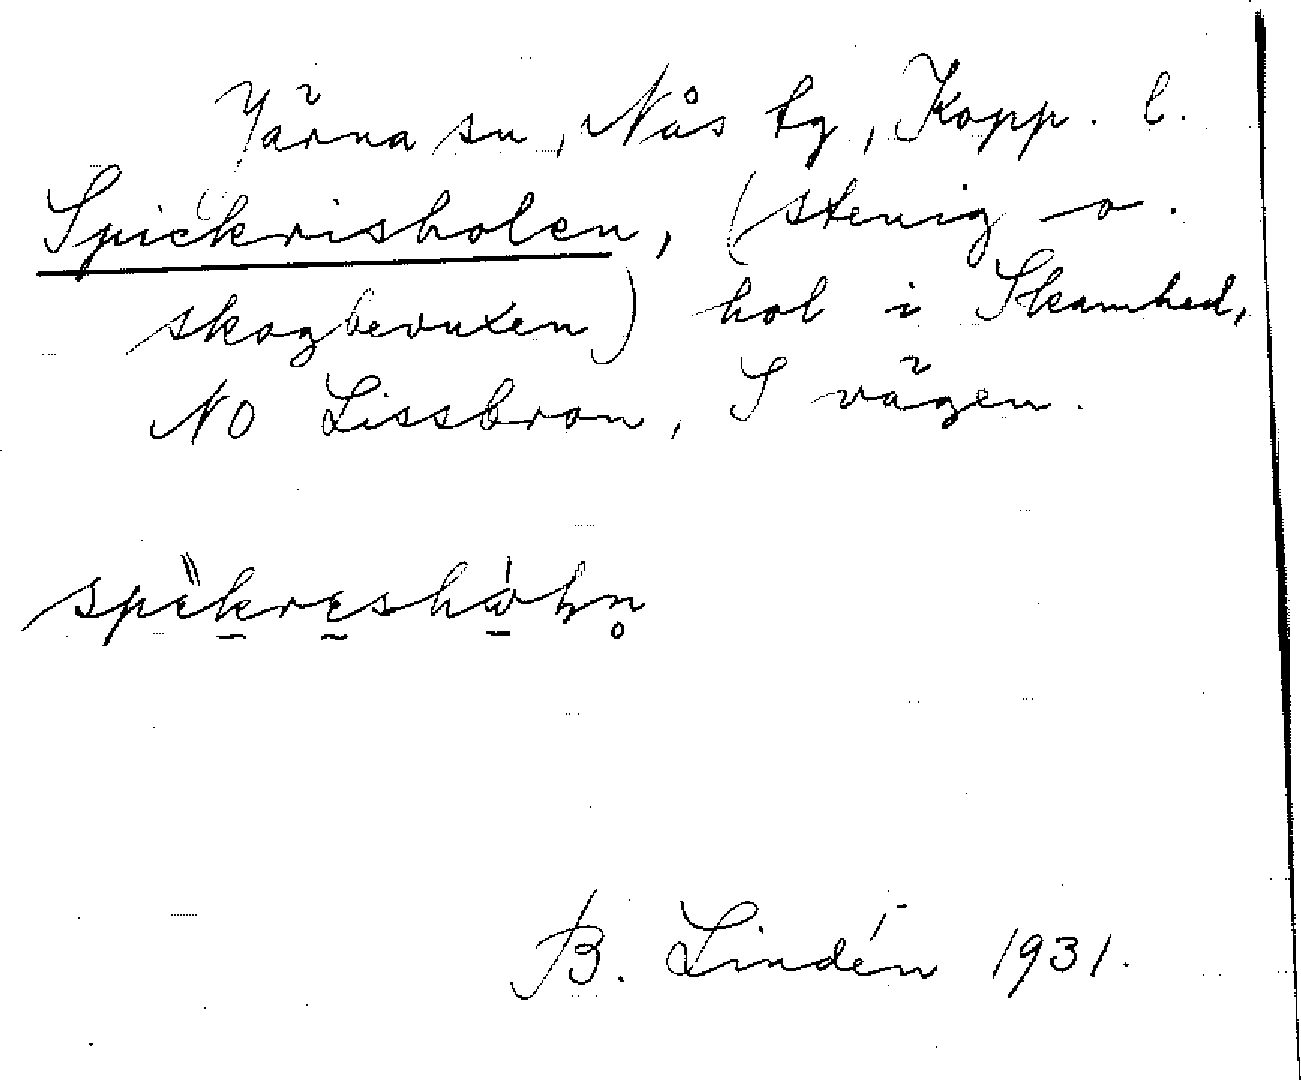 Järna sn, Nås tg, Kopp. l.
Spickrisholen, (stenig o.
skogbevuxen) hol i Skamhed,
NO Lissbron, S vägen.
B. Lindén 1931.